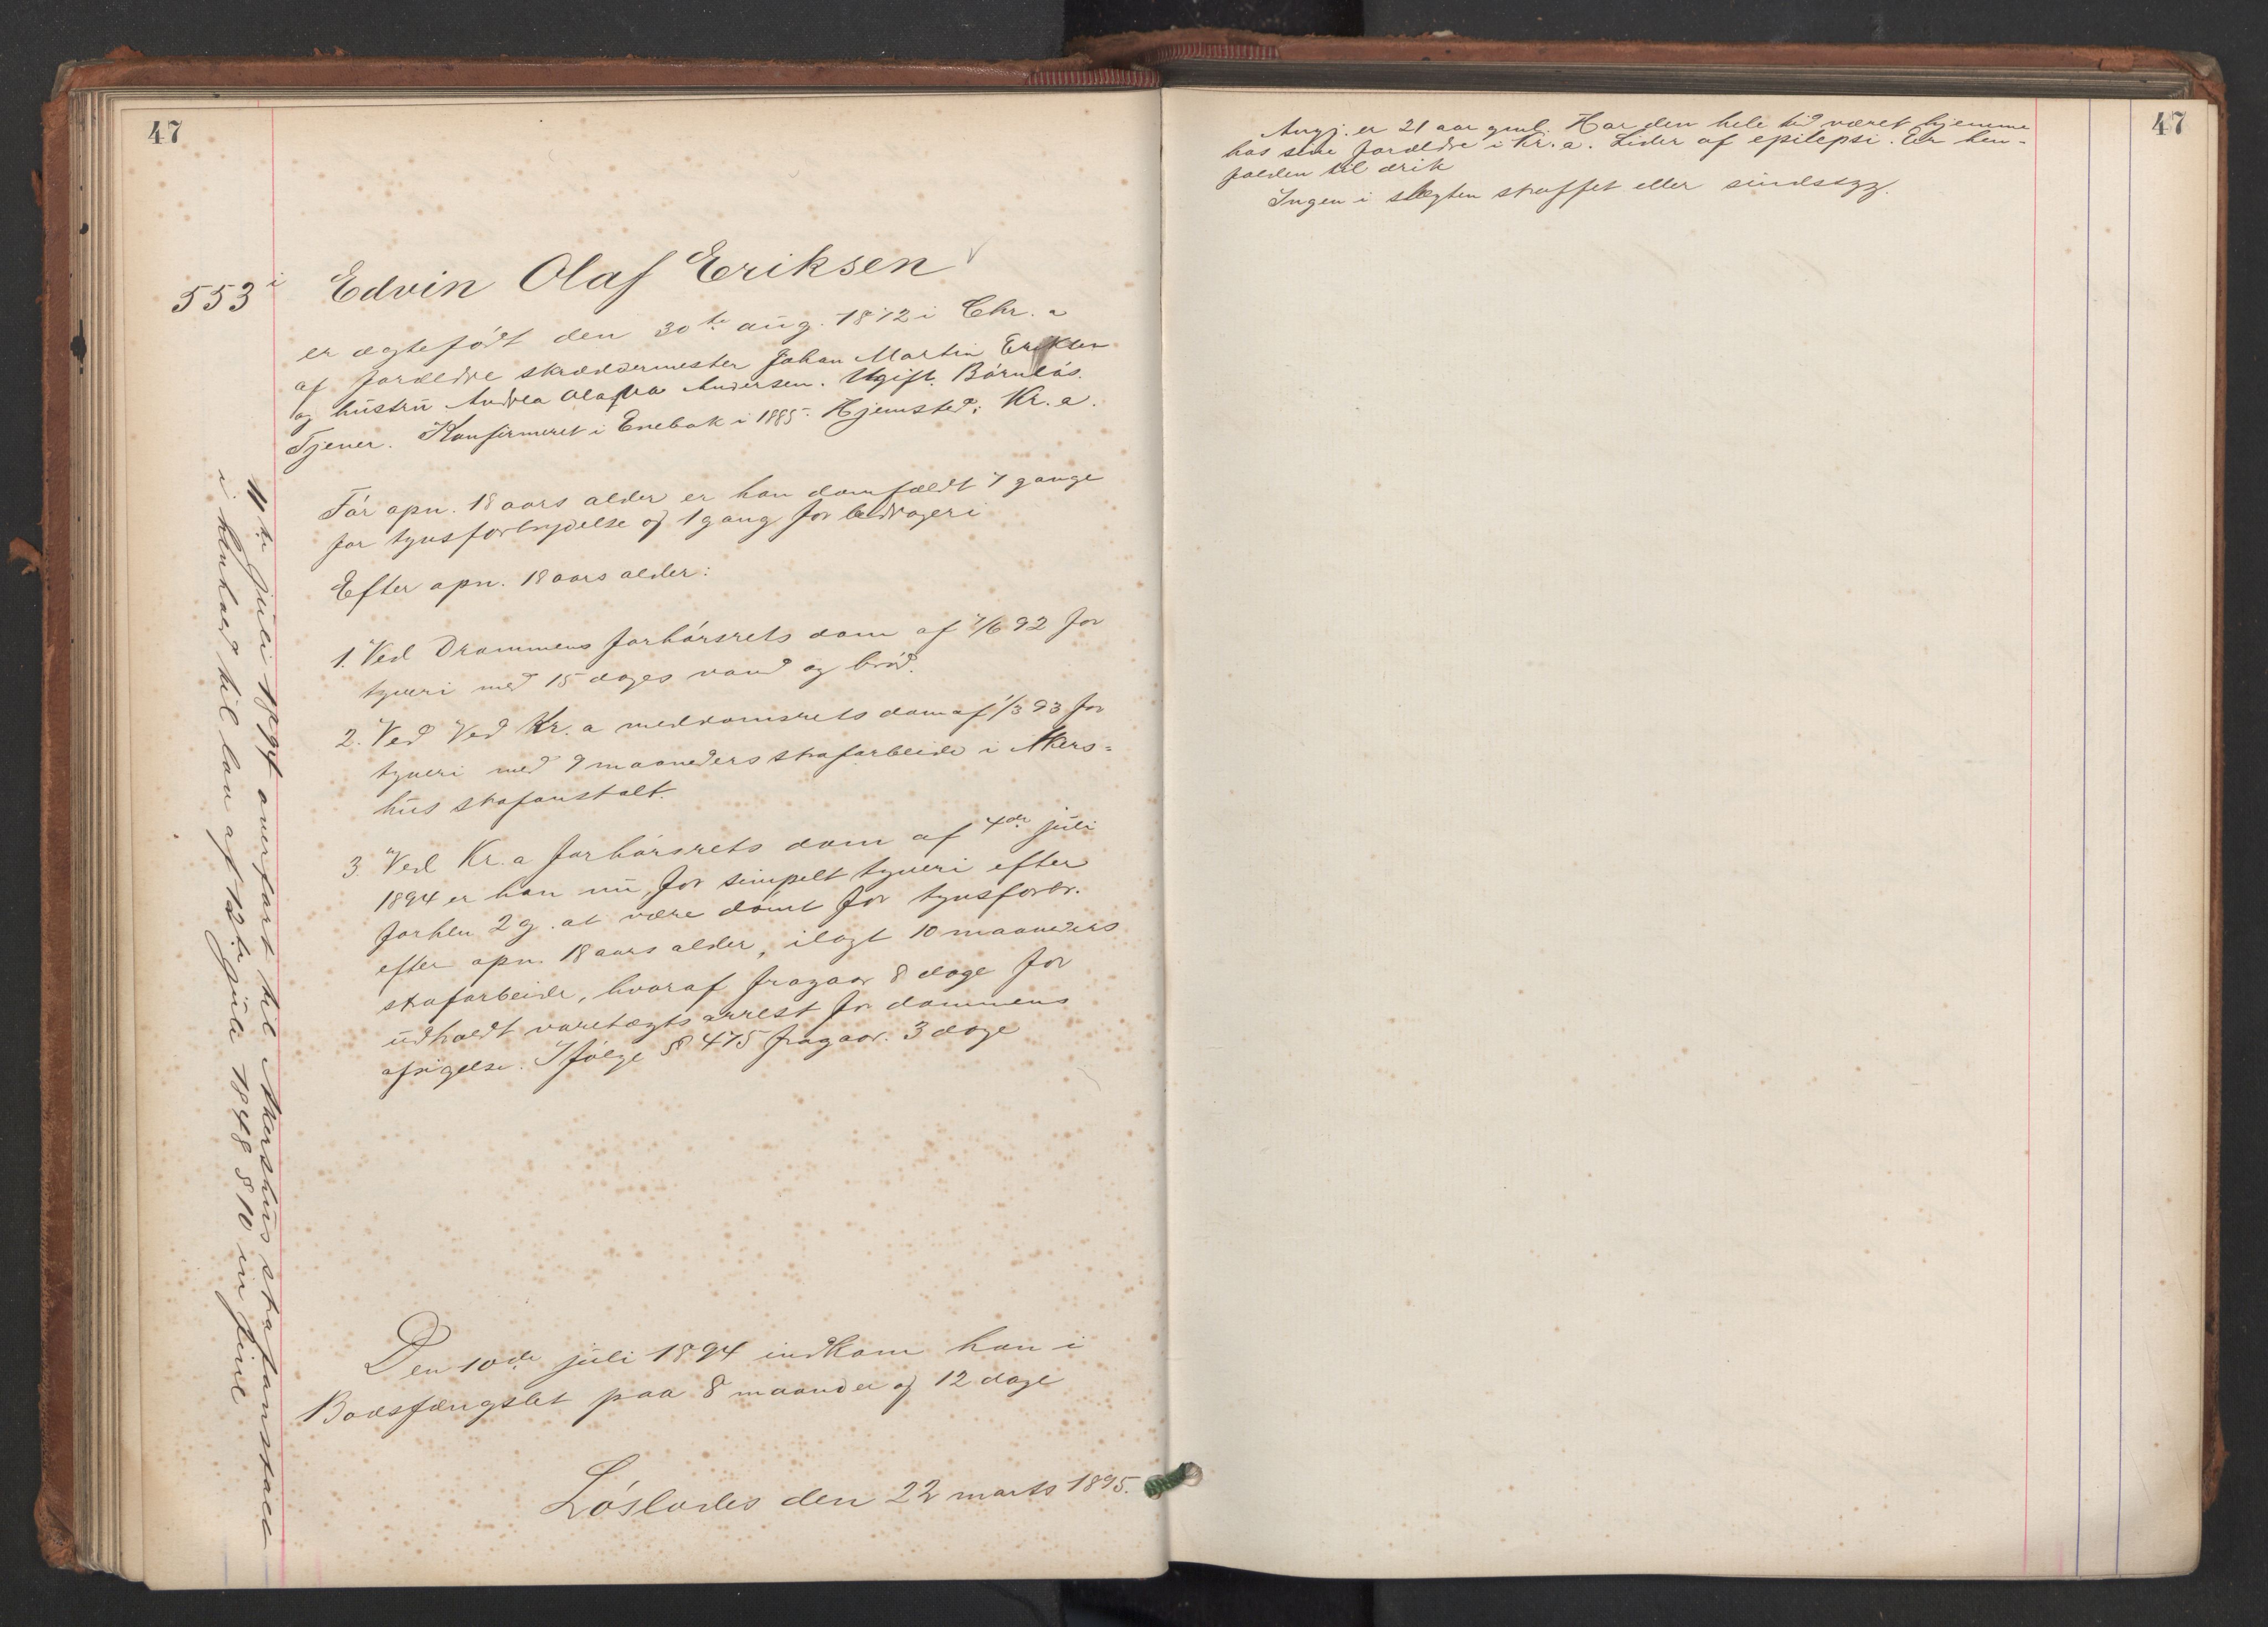 47
553 i
Edvin Olaf Eriksen
er ægtefødt den 30te aug. 1872 i Chr.a
af forældre skræddermester Johan Martin Eriksen
og hustru Andrea Olafva Andersen. Ugift. Barnløs.
Tjener. Konfirmeret i Enebak i 1885. Hjemsted: Kr.a.
Før opn. 18 aars alder er han domfældt 7 gange
for tyvsforbrydelse og 1 gang for bedrageri
Efter opn. 18 aars alder:
1. Ved Drammens forhørsrets dom af 7/6 92 for
tyveri med 15 dages vand og brød.
2. Ved Ved Kr.a meddomsrets dom af 1/3 93 for
tyveri med 9 maaneders strafarbeide i Akers-
hus strafanstalt.
3. Ved Kr.a forhørsrets dom af 4de juli
1894 er han nu, for simpelt tyveri efter
forhen 2 g. at være dømt for tyvsforbr.
efter opn. 18 aars alder, ilagt 10 maaneders
strafarbeide, hvoraf fragaar 8 dage for
udholdt varetægtsarrest før dommens
afsigelse. Ifølge § 475 fragaar 3 dage
Den 10de juli 1894 indkom han i
Bodsfængslet paa 8 maander og 12 dage
Løslodes den 22 marts 1895.
11te juli 1894 overført til Akershus strafanstalt
i henhold til lov af 12te juli 1848 § 10 in fine
47
Angj. er 21 aar gml. Har den hele tid været hjemme
hos sine forældre i Kr.a. Lider af epilepsi. Er hen-
falden til drik
Ingen i slegten straffet eller sindssyg.